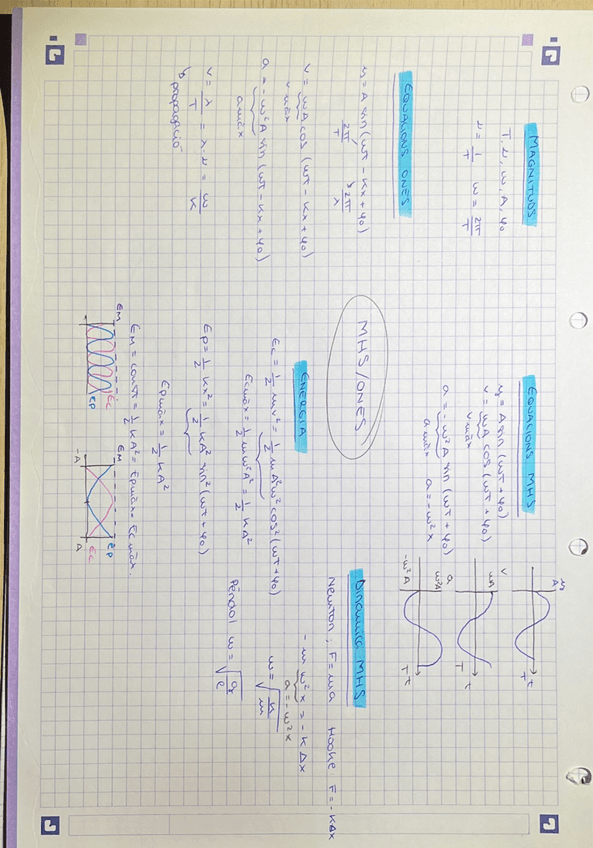 MAGNITUDS
T, ν, ω, A, φ0
ν = 1/T   ω = 2π/T
EQUACIONS ONES
y = A sin(ωt - Kx + φ0)
2π/T   2π/λ
v = ωA cos (ωt - Kx + φ0)
v màx
a = -ω²A sin (ωt - Kx + φ0)
a màx
v = λ/T = λν = ω/K
propagació
MHS/ONES
EQUACIONS MHS
y = A sin(ωt + φ0)
v = ωA cos (ωt + φ0)
v màx
a = -ω²A sin (ωt + φ0)
a màx   a = -ω²x
y
A
T
t
v
ωA
T
t
a
ω²A
-ω²A
T
t
ENERGIA
Ec = 1/2 mv² = 1/2 m A²ω² cos² (ωt + φ0)
Ec màx = 1/2 mω²A² = 1/2 KA²
Ep = 1/2 Kx² = 1/2 KA² sin² (ωt + φ0)
Ep màx = 1/2 KA²
EM = const = 1/2 KA² = Ep màx = Ec màx.
EM
Ec
Ep
EM
Ep
Ec
-A
A
DINÀMICA MHS
Newton: F = ma   Hooke F = -KΔx
-m ω²x = -K Δx
a = -ω²x
ω = √(K/m)
Pèndol ω = √(g/l)